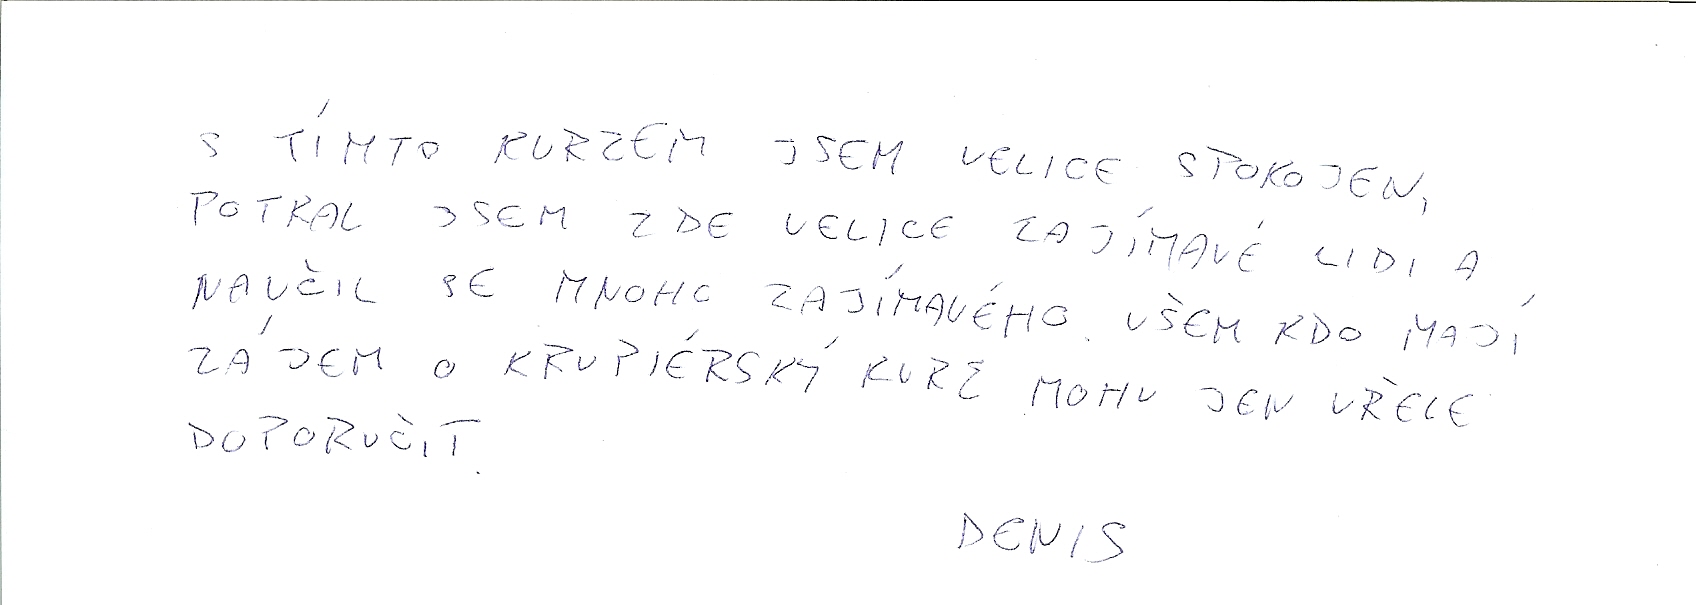 S TÍMTO KURZEM JSEM VELICE SPOKOJEN,
POTKAL JSEM ZDE VELICE ZAJÍMAVÉ LIDI A
NAUČIL SE MNOHO ZAJÍMAVÉHO. VŠEM KDO MAJÍ
ZÁJEM O KRUPIÉRSKÝ KURZ MOHU JEN VŘELE
DOPORUČIT.
DENIS